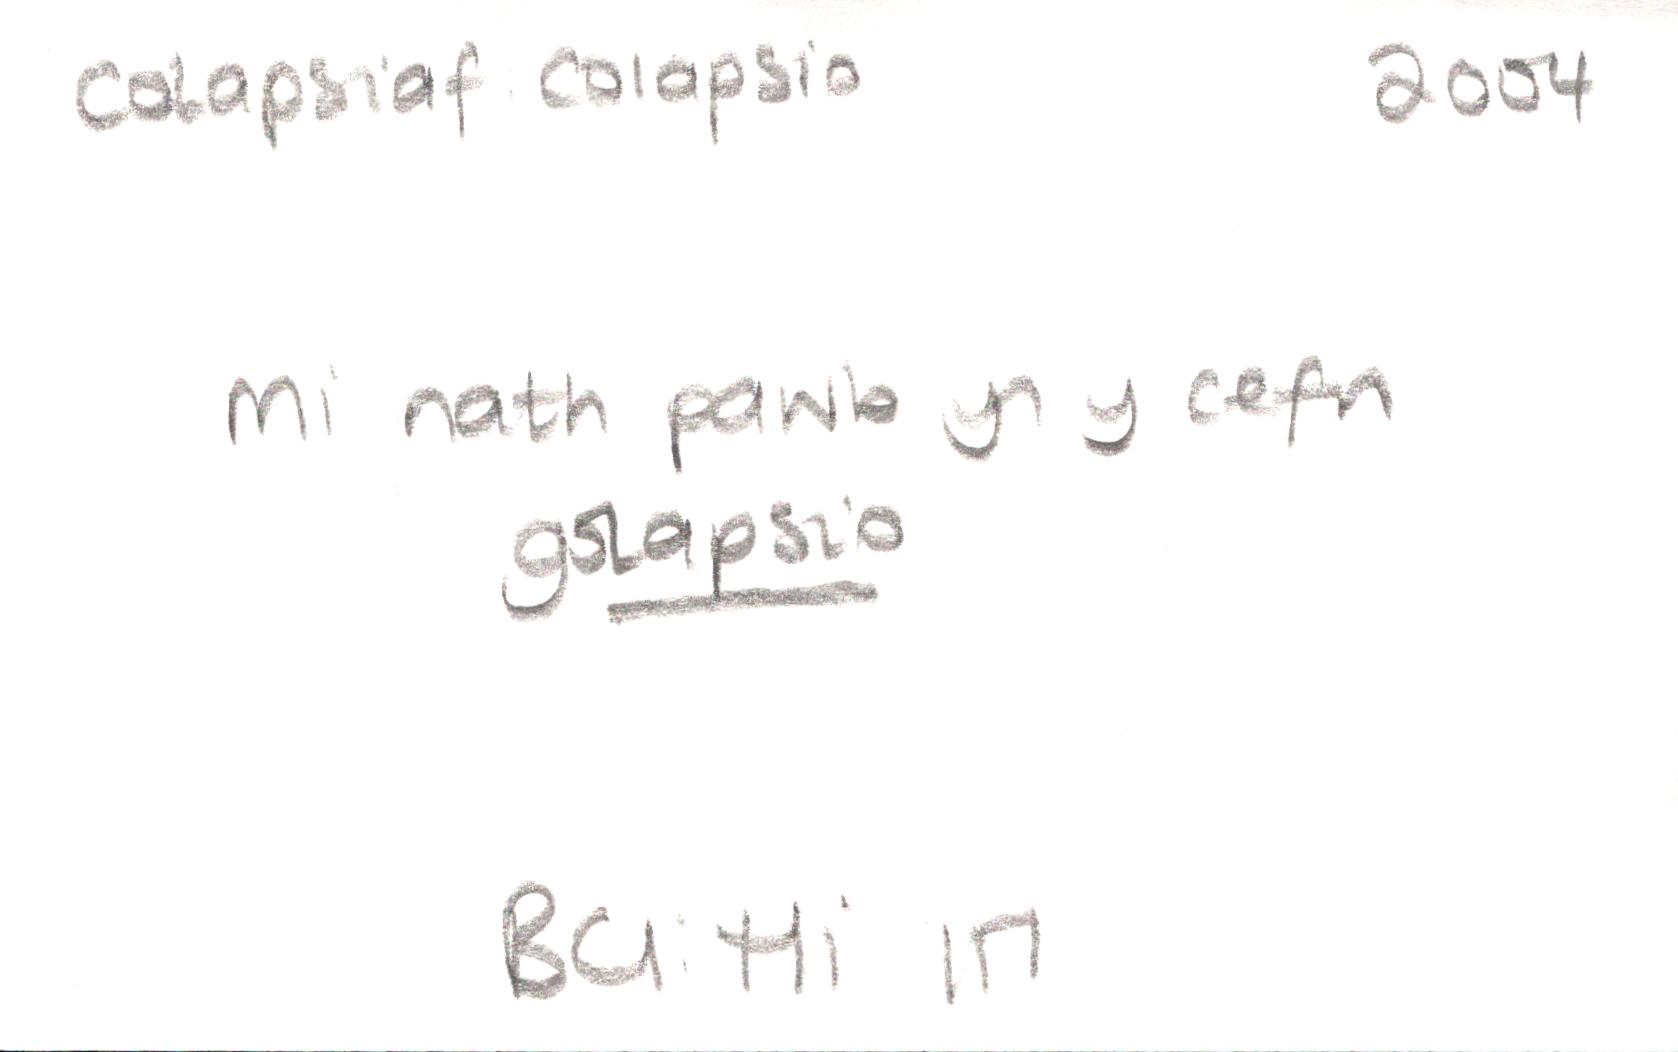 Colapsiaf: Colapsio 2004
Mi nath pawb yn y cefn
golapsio